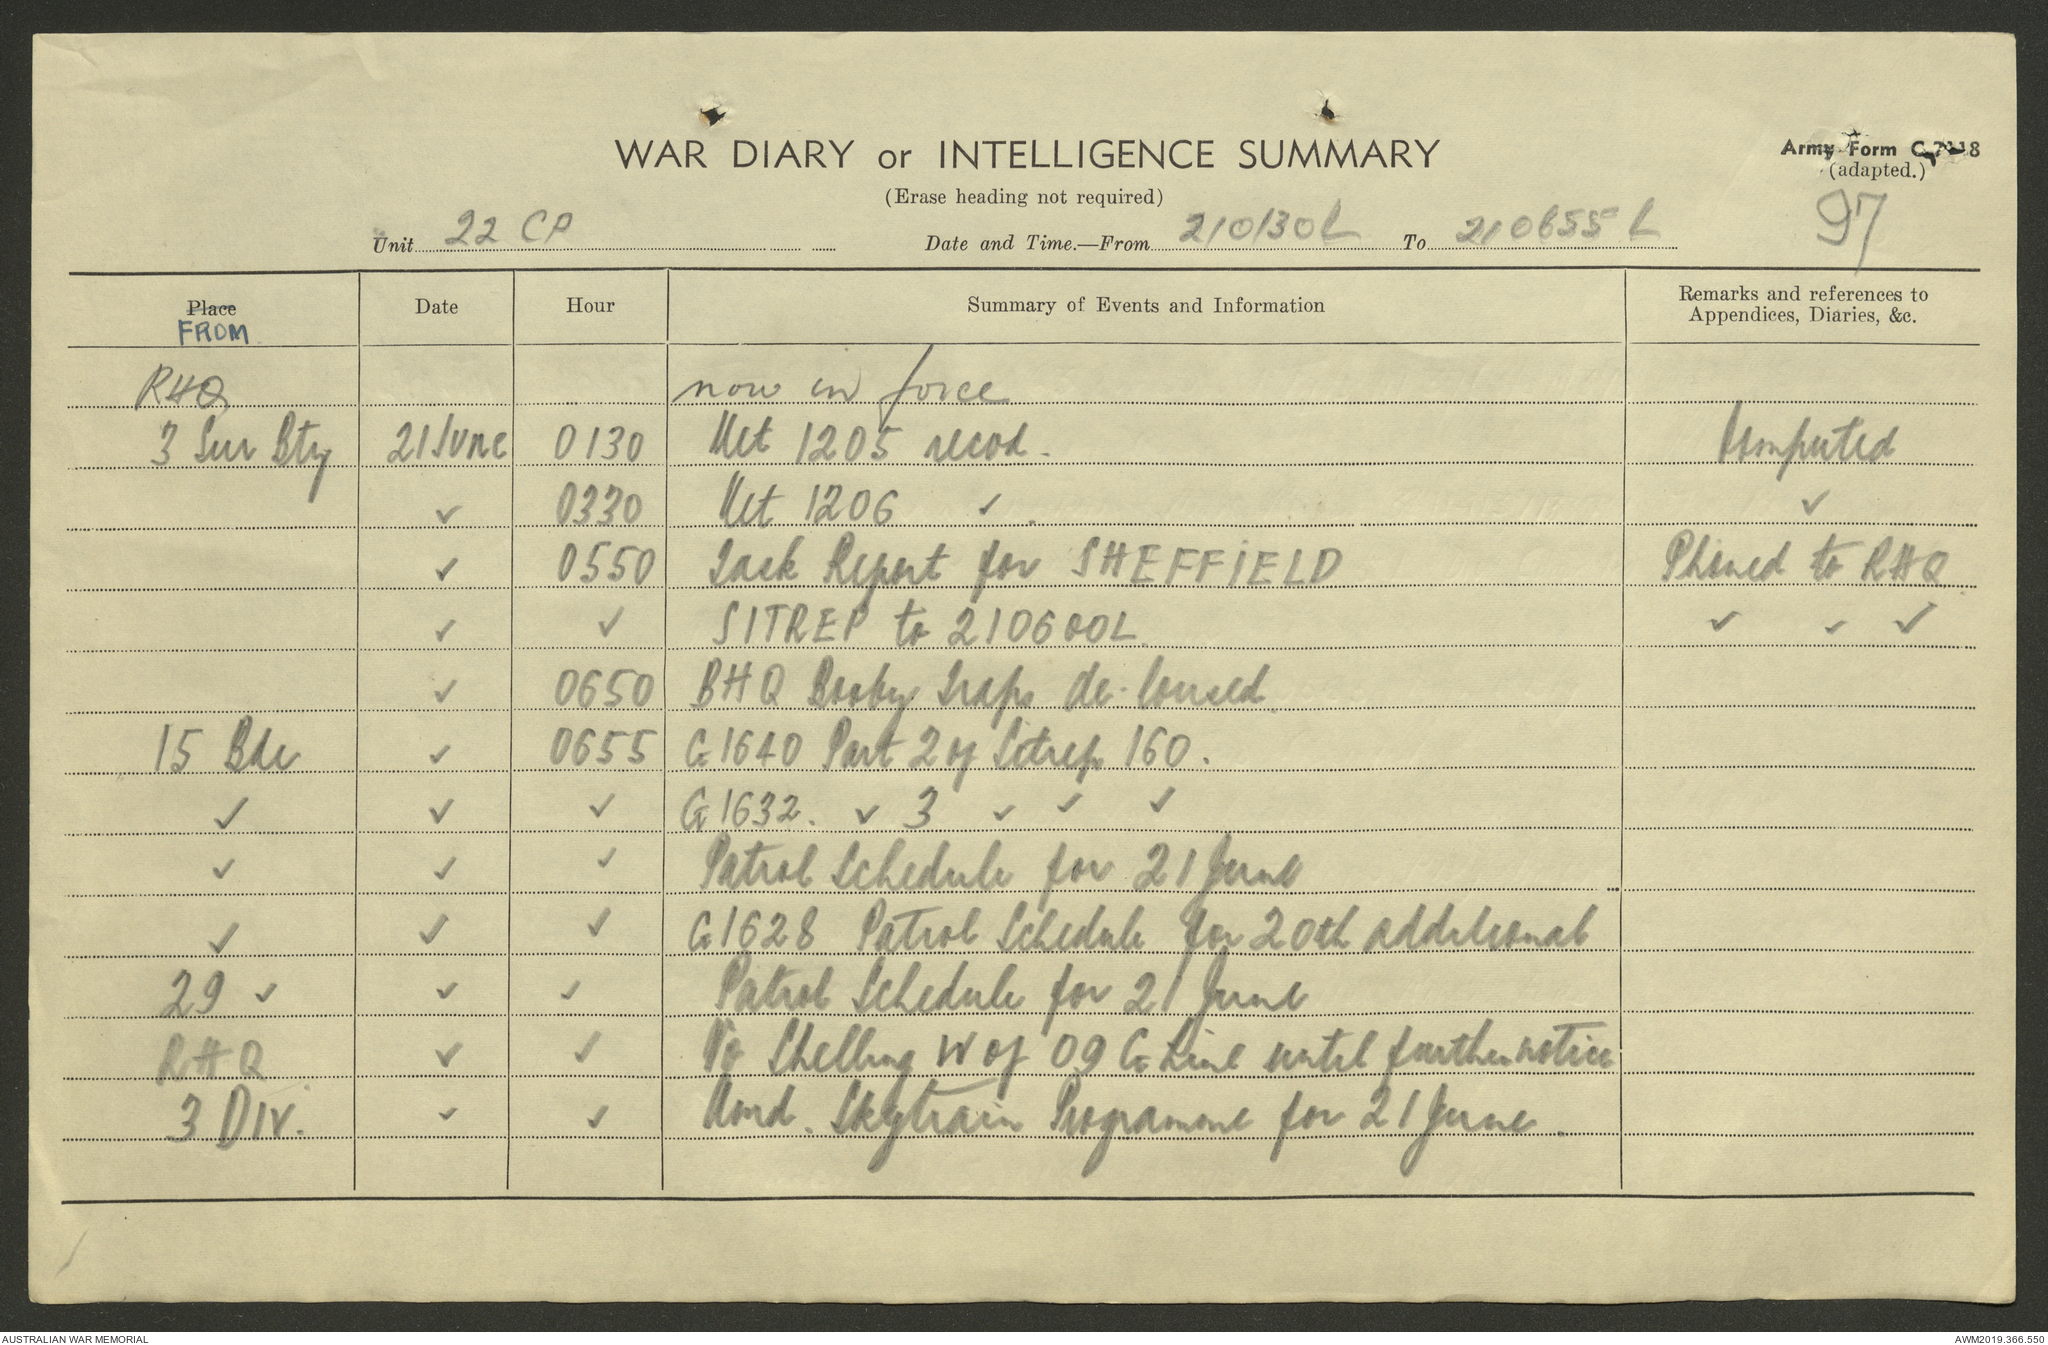 WAR DIARY or INTELLIGENCE SUMMARY
Army Form C.2118
(adapted.)
(Erase heading not required)
97
Unit 22 CP Date and Time.—From 210130L To 210655L
Place Date Hour Summary of Events and Information Remarks and references to Appendices, Diaries, &c.
FROM
RHQ now in force
3 Sur Bty 21 June 0130 Met 1205 recod. Computed
✓ 0330 Met 1206 ✓. ✓
✓ 0550 Task Report for SHEFFIELD Phoned to RHQ
✓ ✓ SITREP to 210600L ✓ ✓ ✓
✓ 0650 BHQ Booby Traps de-loused
15 Bde ✓ 0655 G1640 Part 2 of Sitrep 160.
✓ ✓ ✓ G1632. ✓ 3 ✓ ✓ ✓
✓ ✓ ✓ Patrol Schedule for 21 June
✓ ✓ ✓ G1628 Patrol Schedule for 20th additional
29 ✓ ✓ ✓ Patrol Schedule for 21 June
RHQ ✓ ✓ No Shelling W of 09 G Line until further notice
3 DIV. ✓ ✓ Amd. Skytrain Programme for 21 June.
AUSTRALIAN WAR MEMORIAL
AWM2019.366.550